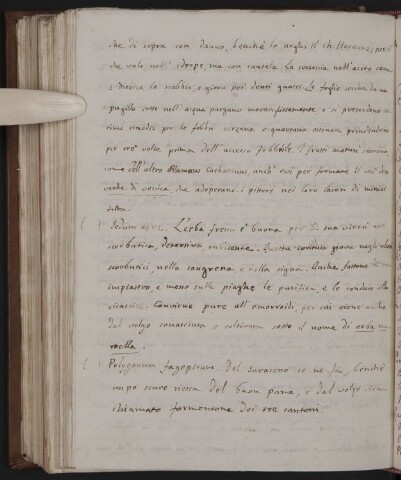 che di sopra con danno, benchè lo voglia il ch. Haranne, perciò
che vale nell'idrope, ma con cautela. La corteccia nell'aceto sana
e dissipa la scabbia, e giova pei denti guasti. Le foglie secche da un
pugillo cotte nell'acqua purgano maravigliosamente e si prescrivono
rimedio per le febbri terzana o quartana ostinata prendendone
per tre volte prima dell'accesso febbrile. I frutti maturi servono,
come dell'altro Rhamnus Catharticus, anch'essi per formare il così detto
verde di vescica, che adoperano i pittori nei loro lavori di minia
tura.
( ) Sedum acre. L'erba fresca è buona per la sua virtù anti
scorbutica, detersiva, rubificante. Questa contusa giova negli ulceri
scorbutici, nella cangrena e nella tigna. Anche fattone
impiastro, e messo sulle piaghe le purifica, e le conduce alla
cicatrice. Conviene pure all'emorroidi, per cui viene anche
dal volgo conosciuta e coltivata sotto il nome di erba mo
roella.
( ) Polygonum fagopirum. Del saraceno se ne fa, benchè
un po scuro riesca del buon pane, e dal volgo viene
chiamato formentone dei tre cantoni.